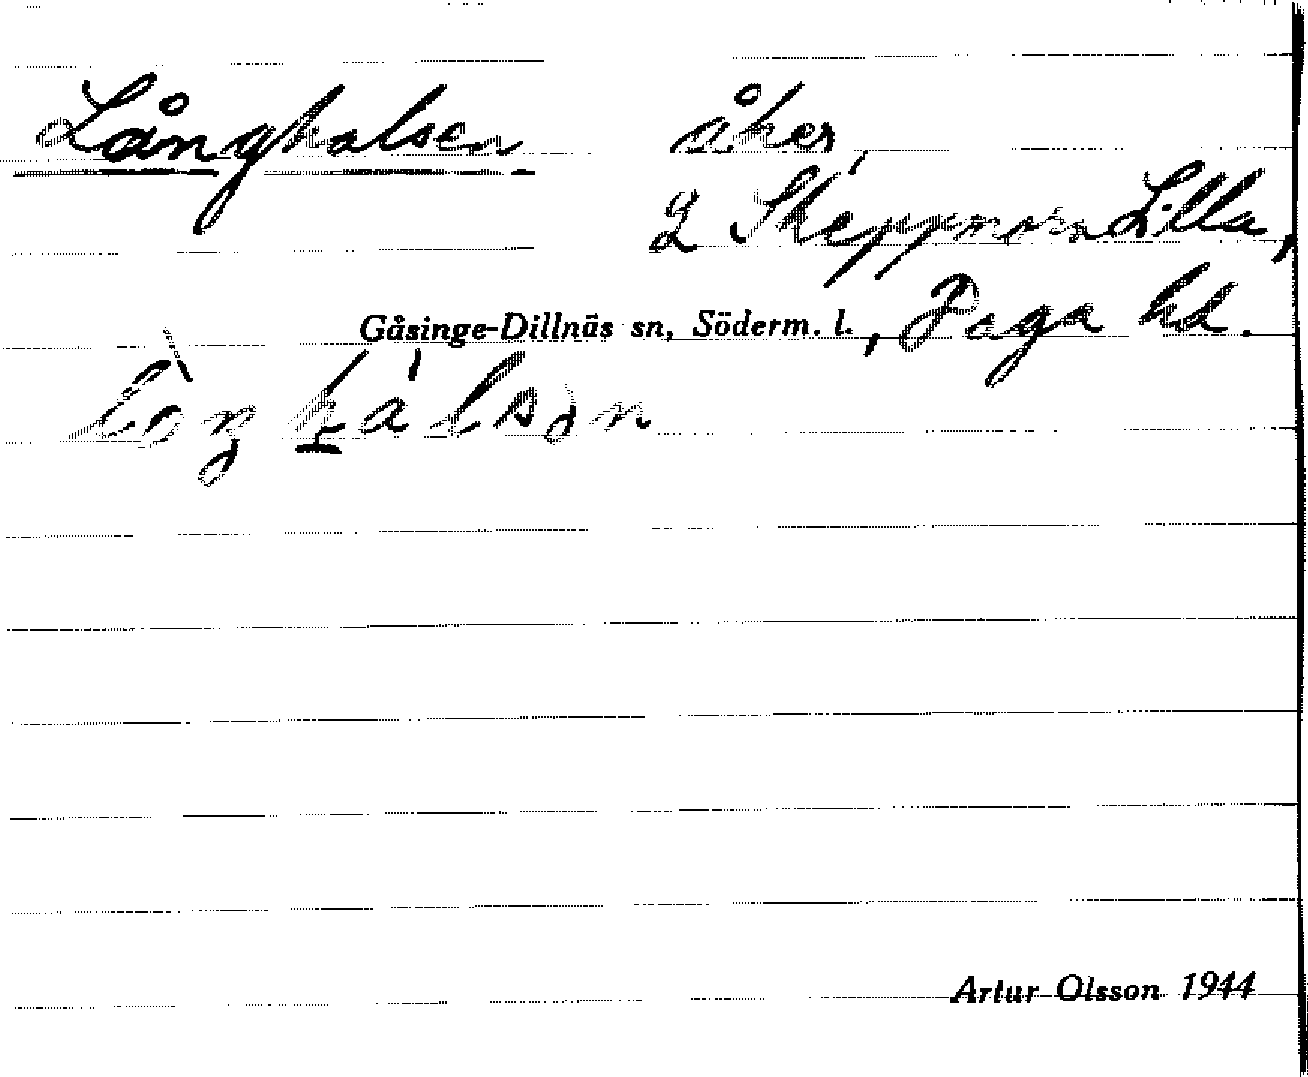 Långhalsen åker
2 Skeppmora Lilla,
Gåsinge-Dillnäs sn, Söderm. l., Daga hd.
Artur Olsson 1944